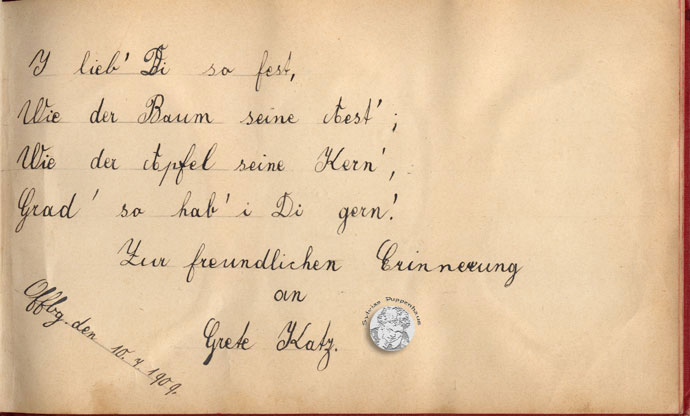 I lieb' Di so fest,
Wie der Baum seine Aest';
Wie der Apfel seine Kern',
Grad' so hab' i Di gern!
Zur freundlichen Erinnerung
an
Grete Katz.
Offbg. den 10. 7 1909.
Sylvias Puppenhaus